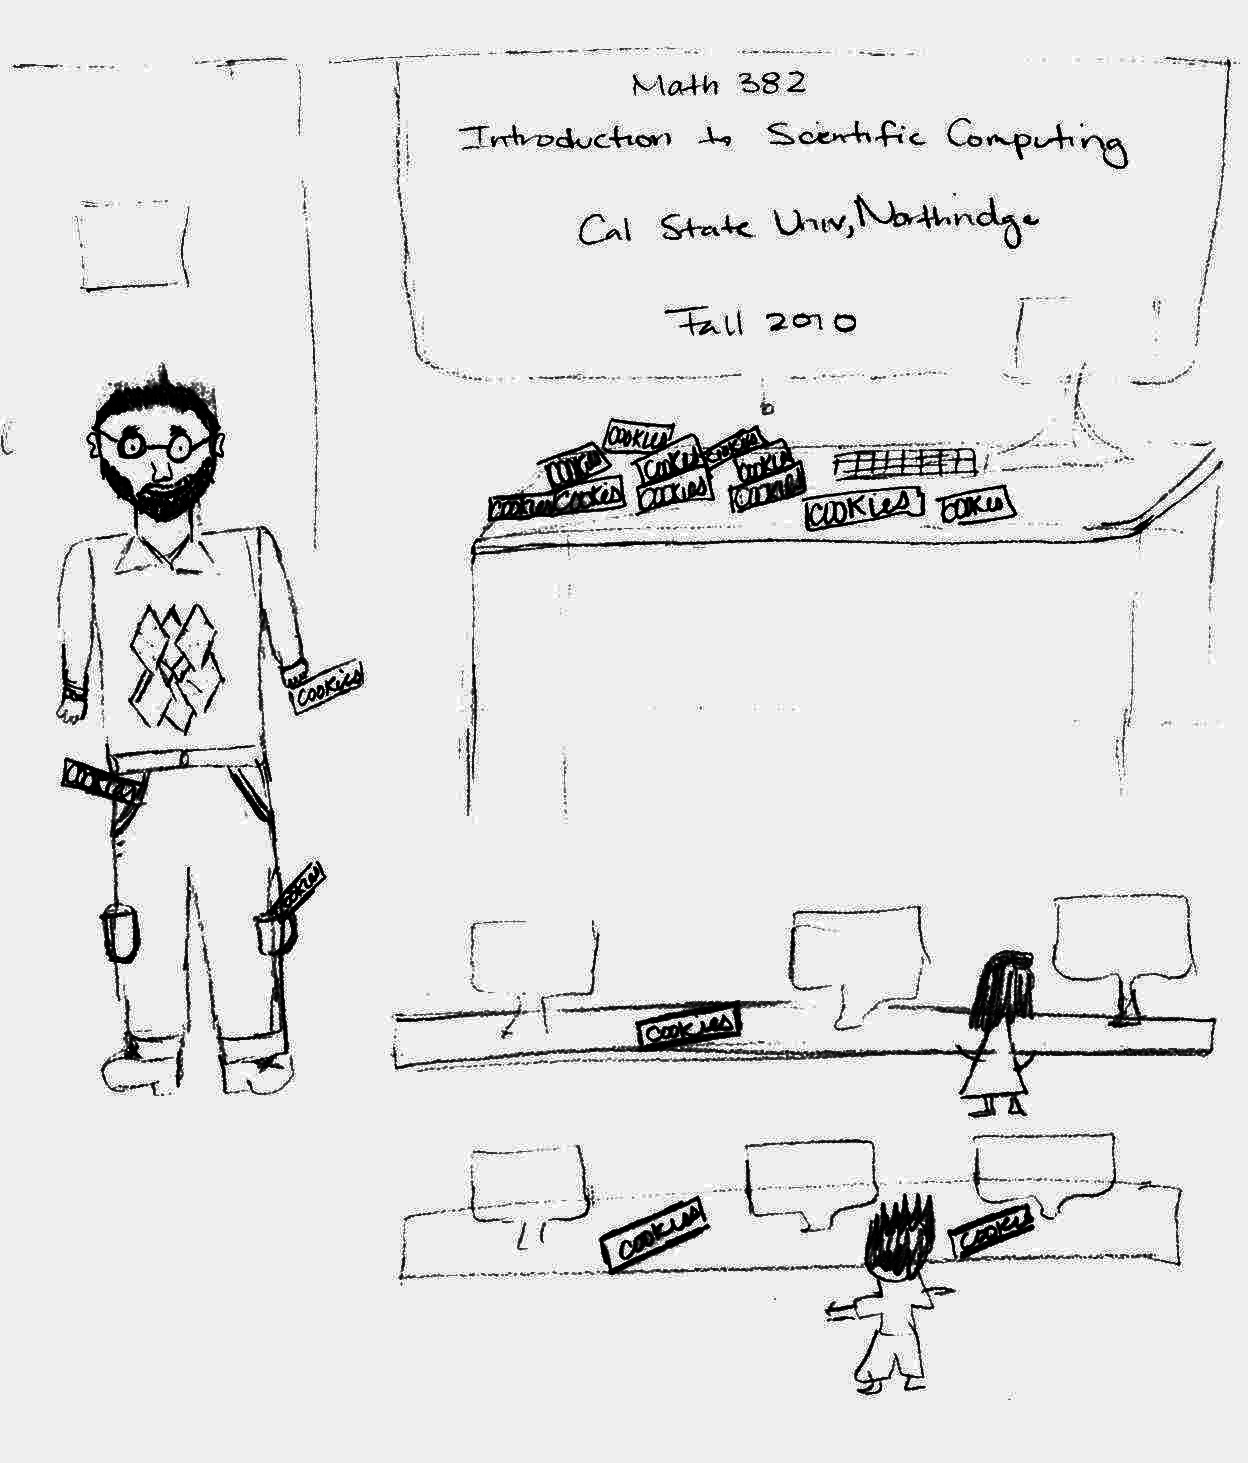 Math 382
Introduction to Scientific Computing
Cal State Univ, Northridge
Fall 2010
COOKIES
COOKIES
COOKIES
COOKIES
COOKIES
COOKIES
COOKIES
COOKIES
COOKIES
COOKIES
COOKIES
COOKIES
COOKIES
COOKIES
COOKIES
COOKIES
COOKIES